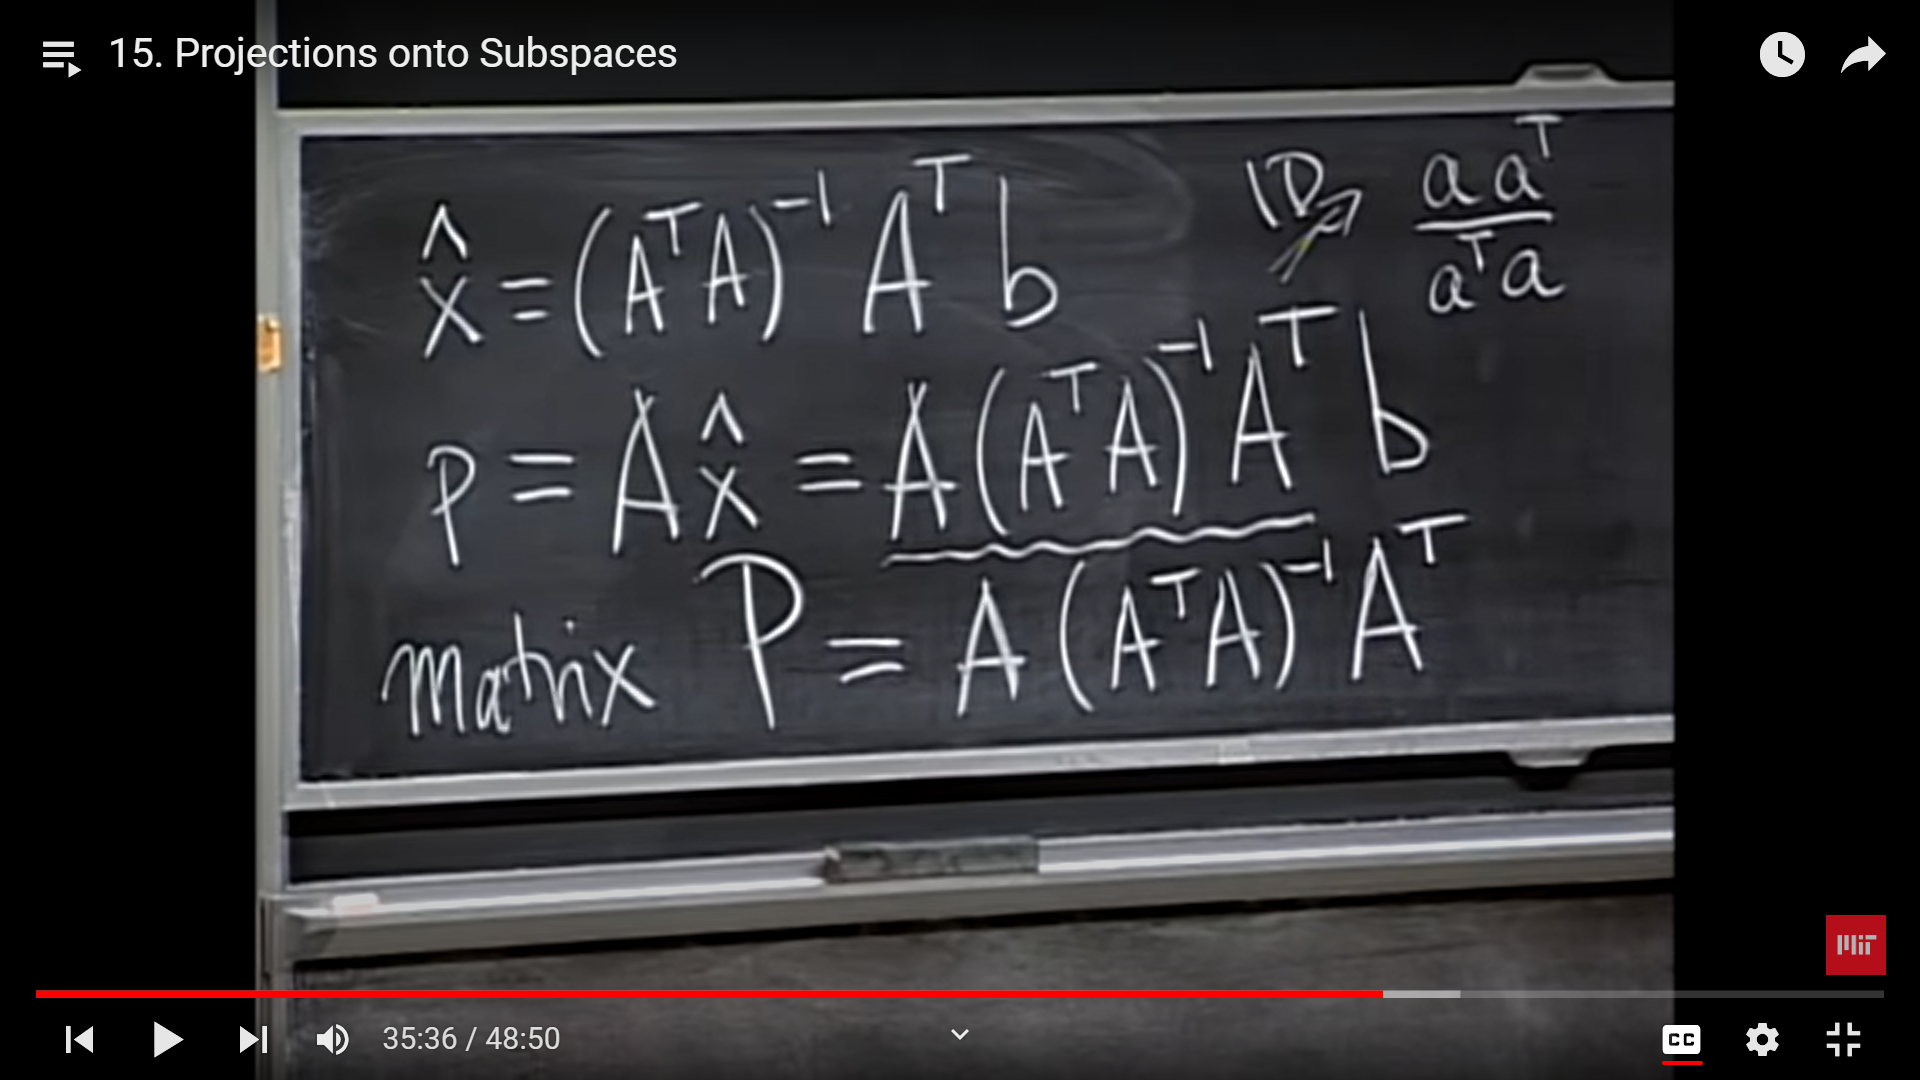 15. Projections onto Subspaces
x̂ = (AᵀA)⁻¹ Aᵀ b
1D aaᵀ / aᵀa
p = Ax̂ = A(AᵀA)⁻¹Aᵀ b
matrix P = A(AᵀA)⁻¹Aᵀ
MIT
35:36 / 48:50
CC